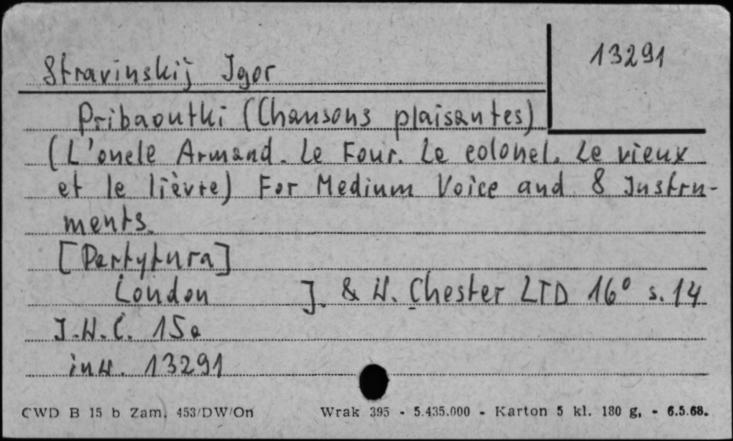 13291
Stravinskij Igor
Pribaoutki (Chansons plaisantes)
(L'onele Armand. Le Four. Le colonel. Le vieux
et le lièvre) For Medium Voice and 8 Instru-
ments.
[Partytura]
London J. & W. Chester LTD 16° s. 14
J.W.C. 15a
inw. 13291
CWD B 15 b Zam. 453/DW/On Wrak 395 - 5.435.000 - Karton 5 kl. 180 g, - 6.5.68.